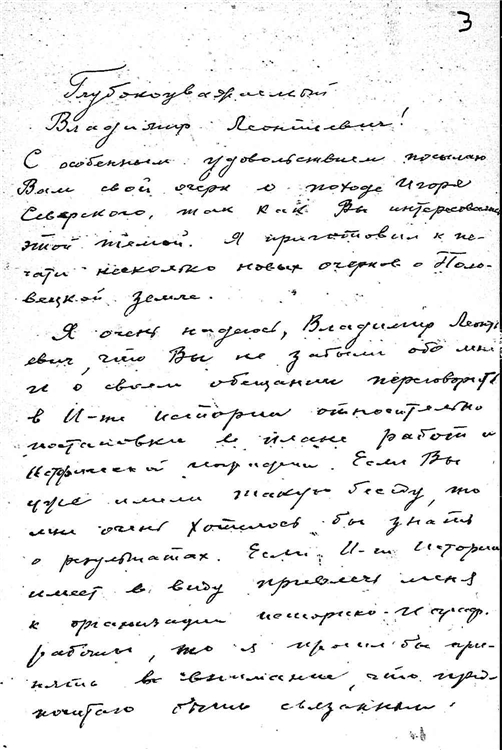 3
Глубокоуважаемый
Владимир Леонтиевич!
С особенным удовольствием посылаю
Вам свой очерк о походе Игоря
Северского, так как Вы интересовались
этой темой. Я приготовил к пе-
чати несколько новых очерков о Поло-
вецкой земле.
Я очень надеюсь, Владимир Леонти-
евич, что Вы не забыли обо мне
и о своем обещании переговорить
в И-те истории относительно
постановки в плане работ и
исторической географии. Если Вы
уже имели такую беседу, то
мне очень хотелось бы знать
о результатах. Если И-т Истории
имеет в виду привлечь меня
к организации историко-географ.
работы, то я просил бы при-
нять во внимание, что пред-
почитаю быть связанным